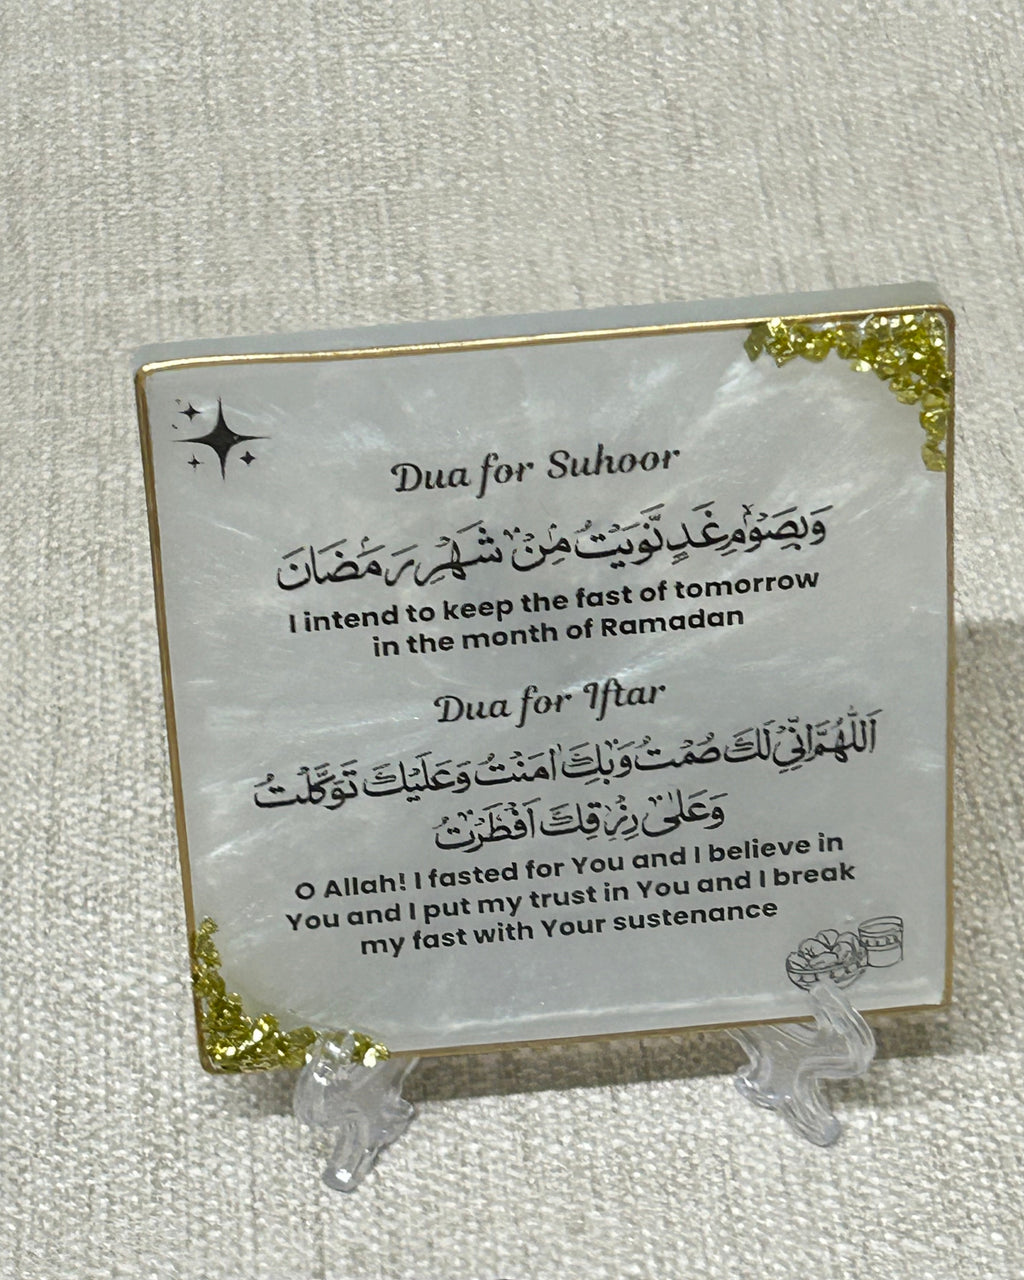 Dua for Suhoor
وَبِصَوْمِ غَدٍ نَّوَيْتُ مِنْ شَهْرِ رَمَضَانَ
I intend to keep the fast of tomorrow
in the month of Ramadan
Dua for Iftar
اَللّٰهُمَّ اِنِّیْ لَكَ صُمْتُ وَبِكَ اٰمَنْتُ وَعَلَيْكَ تَوَكَّلْتُ
وَعَلٰی رِزْقِكَ اَفْطَرْتُ
O Allah! I fasted for You and I believe in
You and I put my trust in You and I break
my fast with Your sustenance